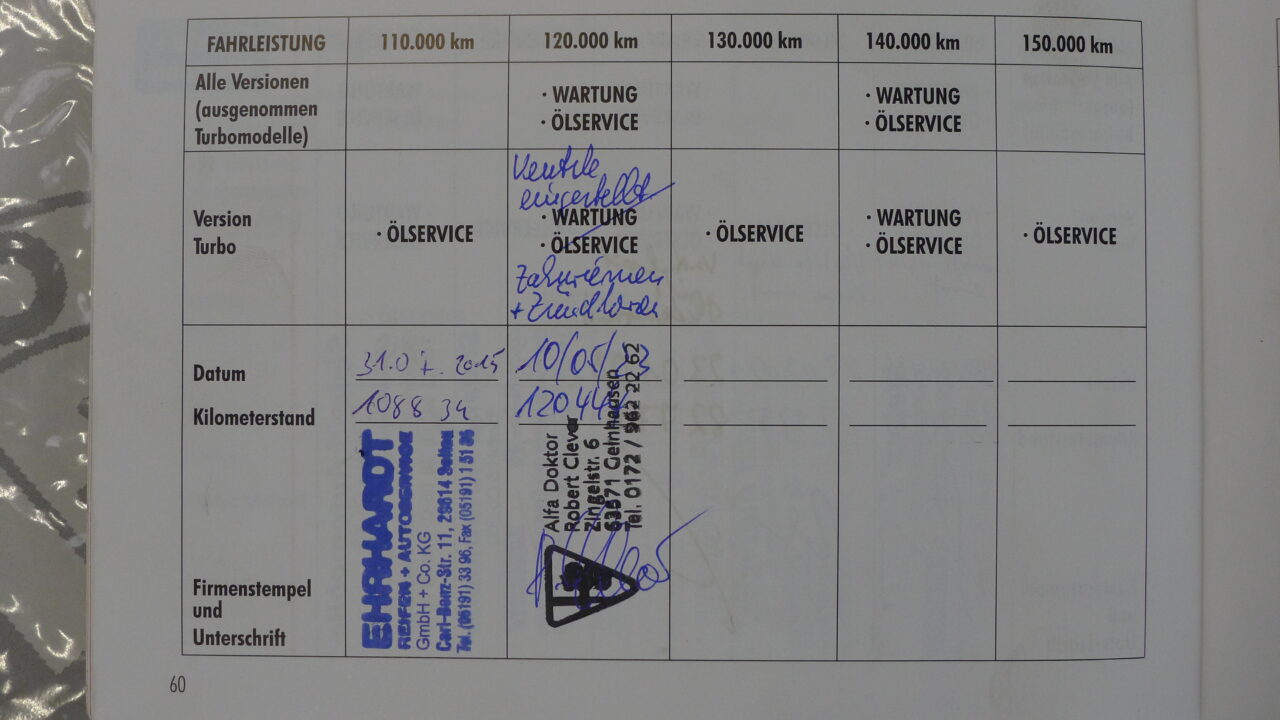 FAHRLEISTUNG 110.000 km 120.000 km 130.000 km 140.000 km 150.000 km
Alle Versionen
(ausgenommen
Turbomodelle)
· WARTUNG
· ÖLSERVICE
· WARTUNG
· ÖLSERVICE
Version
Turbo
· ÖLSERVICE
Ventile
eingestellt
· WARTUNG
· ÖLSERVICE
Zahnriemen
+ Zündkerzen
· ÖLSERVICE
· WARTUNG
· ÖLSERVICE
· ÖLSERVICE
Datum
31.07.2015
10/05/
Kilometerstand
108834
12044
Firmenstempel
und
Unterschrift
EHRHARDT
REIFEN + AUTOSERVICE
GmbH + Co. KG
Carl-Benz-Str. 11, 29614 Soltau
Tel. (05191) 33 96, Fax (05191) 1 51 86
Alfa Doktor
Robert Clever
Zingelstr. 6
63571 Gelnhausen
Tel. 0172 / 962 22 62
60